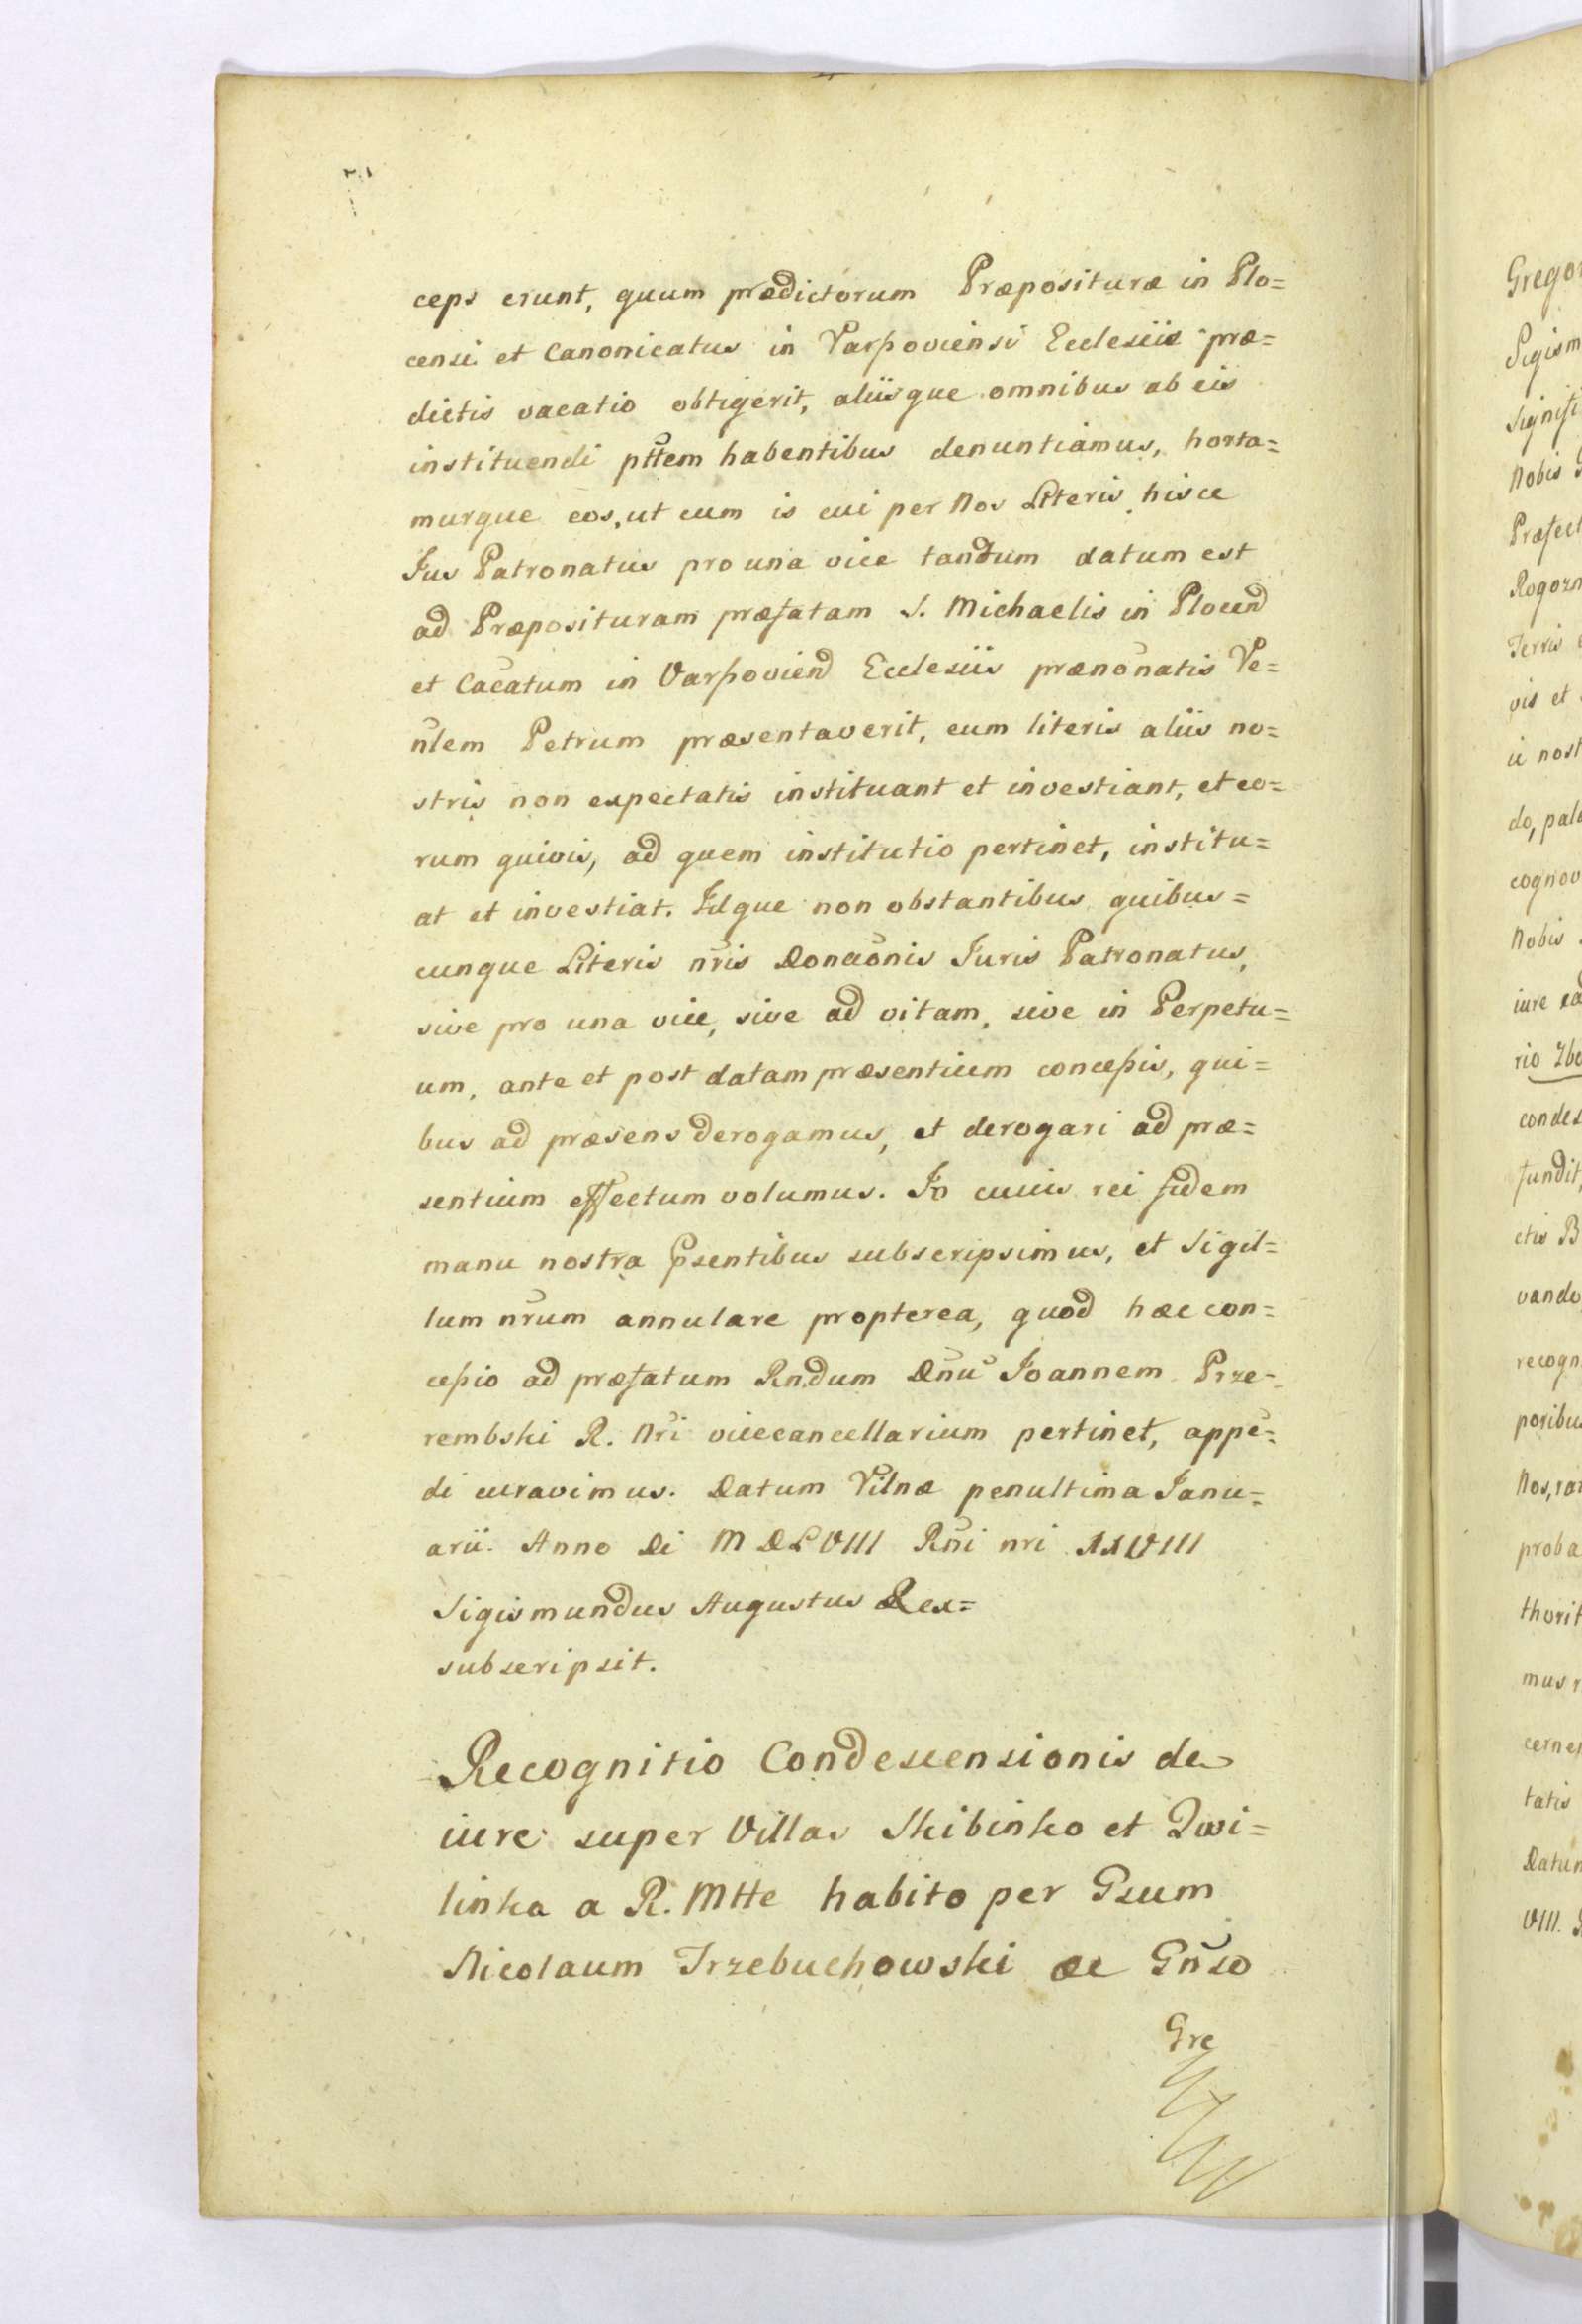 ceps erunt, quum prædictorum Præposituræ in Plo=
censi et Canonicatus in Varßoviensi Ecclesiis præ=
dictis vacatio obtigerit, aliisque omnibus ab eis
instituendi pttem habentibus denuntiamus, horta=
murque eos, ut cum is cui per Nos Literis hisce
Jus Patronatus pro una vice tandum datum est
ad Præposituram præfatam S. Michaelis in Plocend
et Cacatum in Varßoviend Ecclesiis prænoñatis Ve=
ñlem Petrum præsentaverit, eum literis aliis no=
stris non expectatis instituant et investiant, et eo=
rum quivis, ad quem institutio pertinet, institu=
at et investiat. Idque non obstantibus quibus=
cunque Literis nr̃is Donac̃onis Juris Patronatus,
sive pro una vice, sive ad vitam, sive in Perpetu=
um, ante et post datam præsentium conceßis, qui=
bus ad præsens derogamus, et derogari ad præ=
sentium effectum volumus. In cuius rei fidem
manu nostra Psentibus subscripsimus, et Sigil=
lum nr̃um annulare propterea, quod hæc con=
ceßio ad præfatum Rndum Dñu Joannem Prze=
rembski R. Nr̃i vicecancellarium pertinet, appe=
di curavimus. Datum Vilnæ penultima Janu=
arii. Anno Di MDLVIII Rñi nri XXVIII
Sigismundus Augustus Rex=
subscripsit.
Recognitio Condescensionis de
iure super Villas Skibinko et Qwi=
linka a R. Mtte habito per Gsum
Nicolaum Trzebuchowski ac Gñso
Gre
Gregor
Sigism
Signifi
Nobis
Præfect
Rogozn
Terris
vis et
ii nost
do, pala
cognov
Nobis
iure ea
rio Zbo
condes
fundit,
ctis B
vando
recogn
poribu
Nos, ra
proba
thorit
mus r
cernen
tatis
Datum
VIII.